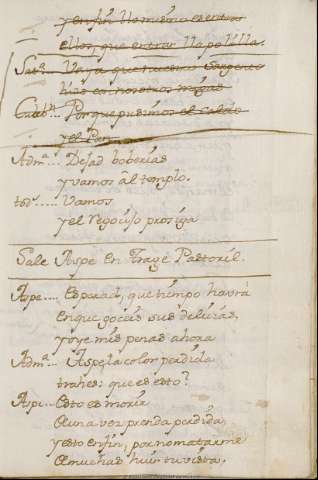 y en fin lo mismo es entrar
ellos, que entrar la polilla.
Sat.º Vaya que nuestro
hies es nosotros
Cud.ª Porque pudimos el caldo
y el Pan
Adm.ª... Dejad boberias
y vamos âl templo.
tod.s..... Vamos
y el regocijo prosiga
Sale Aspe En Trage Pastoril.
Aspe.... Esperad, que tiempo havrá
En que goceis sus delicias,
y oye mis penas ahora
Adm.ª... Aspe, la color perdida
trahes: que es esto?
Aspe... Esto es morir
De una vez prenda perdida
y esto en fin, por no matarme
De muchas huir tu vista.